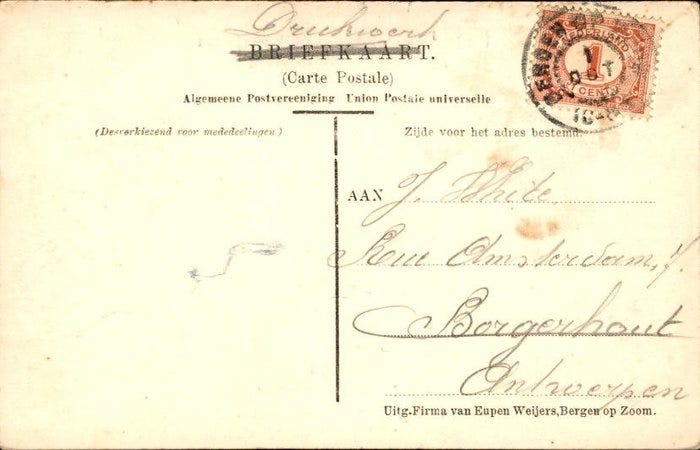 Drukwerk
BRIEFKAART.
(Carte Postale)
Algemeene Postvereeniging Union Postale universelle
(Desverkiezend voor mededeelingen)
Zijde voor het adres bestemd.
NEDERLAND
1
CENT
BERGEN OP
1 OCT
AAN J. White
Rue Amsterdam,
Borgerhout
Antwerpen
Uitg. Firma van Eupen Weijers, Bergen op Zoom.